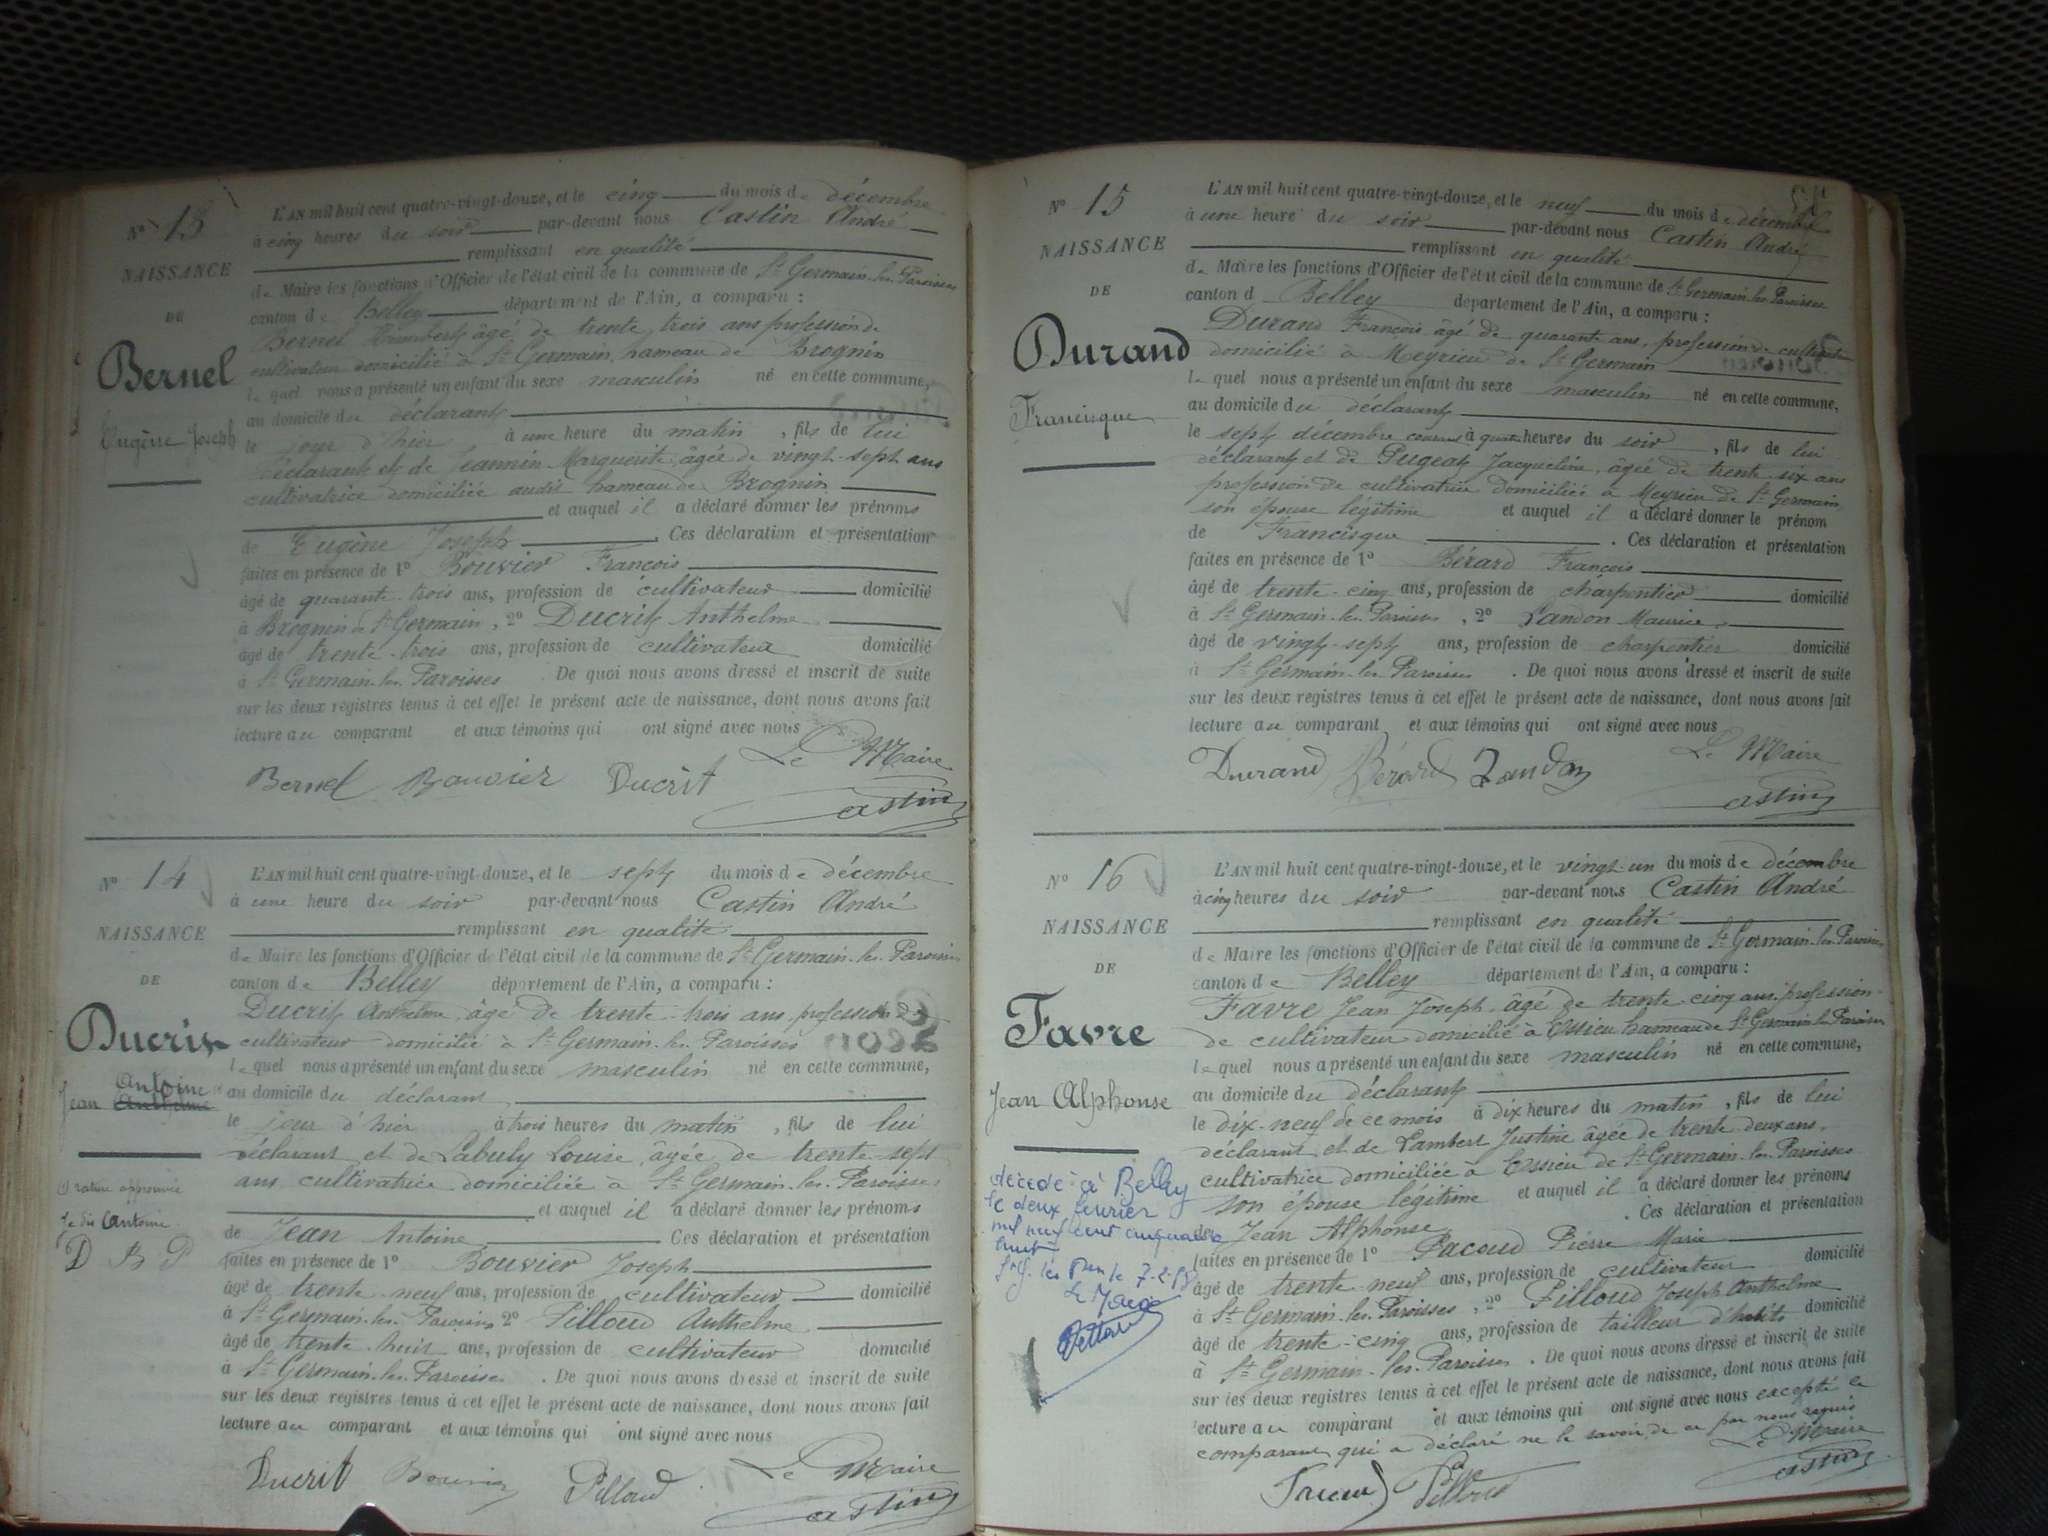 N° 13
NAISSANCE
DE
Bernel
Eugène Joseph
L'AN mil huit cent quatre-vingt-douze, et le cinq du mois de décembre
à cinq heures du soir par-devant nous Castin André
remplissant en qualité
de Maire les fonctions d'Officier de l'état civil de la commune de St Germain-les-Paroisses
canton de Belley département de l'Ain, a comparu :
Bernel Humbert âgé de trente trois ans profession de
cultivateur domicilié à St Germain, hameau de Brognin
lequel nous a présenté un enfant du sexe masculin né en cette commune,
au domicile du déclarant
le jour d'hier, à une heure du matin, fils de lui
déclarant et de Jeannin Marguerite âgée de vingt-sept ans
cultivatrice domiciliée audit hameau de Brognin
et auquel il a déclaré donner les prénoms
de Eugène Joseph. Ces déclaration et présentation
faites en présence de 1° Bouvier François
âgé de quarante-trois ans, profession de cultivateur domicilié
à Brognin à St Germain, 2° Ducrit Anthelme
âgé de trente-trois ans, profession de cultivateur domicilié
à St Germain-les-Paroisses. De quoi nous avons dressé et inscrit de suite
sur les deux registres tenus à cet effet le présent acte de naissance, dont nous avons fait
lecture au comparant et aux témoins qui ont signé avec nous
Le Maire
Bernel Bouvier Ducrit Castin
N° 14
NAISSANCE
DE
Ducrit
Antoine
Jean Anthelme
rature approuvée
Je dis Antoine
D B P
L'AN mil huit cent quatre-vingt-douze, et le sept du mois de décembre
à une heure du soir par-devant nous Castin André
remplissant en qualité
de Maire les fonctions d'Officier de l'état civil de la commune de St Germain-les-Paroisses
canton de Belley département de l'Ain, a comparu :
Ducrit Anthelme, âgé de trente-trois ans profession de
cultivateur domicilié à St Germain-les-Paroisses
lequel nous a présenté un enfant du sexe masculin né en cette commune,
au domicile du déclarant
le jour d'hier à trois heures du matin, fils de lui
déclarant et de Labuly Louise, âgée de trente-sept
ans cultivatrice domiciliée à St Germain-les-Paroisses
et auquel il a déclaré donner les prénoms
de Jean Antoine Ces déclaration et présentation
faites en présence de 1° Bouvier Joseph
âgé de trente-neuf ans, profession de cultivateur domicilié
à St Germain-les-Paroisses 2° Pilloud Anthelme
âgé de trente-huit ans, profession de cultivateur domicilié
à St Germain-les-Paroisses. De quoi nous avons dressé et inscrit de suite
sur les deux registres tenus à cet effet le présent acte de naissance, dont nous avons fait
lecture au comparant et aux témoins qui ont signé avec nous
Le Maire
Ducrit Bouvier Pilloud Castin
N° 15
NAISSANCE
DE
Durand
Francisque
L'AN mil huit cent quatre-vingt-douze, et le neuf du mois de décembre
à une heure du soir par-devant nous Castin André
remplissant en qualité
de Maire les fonctions d'Officier de l'état civil de la commune de St Germain-les-Paroisses
canton d Belley département de l'Ain, a comparu :
Durand François âgé de quarante ans, profession de cultivateur
domicilié à Meyrieu de St Germain
lequel nous a présenté un enfant du sexe masculin né en cette commune,
au domicile du déclarant
le sept décembre courant à quatre heures du soir, fils de lui
déclarant et de Pugeat Jacqueline, âgée de trente-six ans
profession de cultivatrice domiciliée à Meyrieu de St Germain
son épouse légitime et auquel il a déclaré donner le prénom
de Francisque. Ces déclaration et présentation
faites en présence de 1° Bérard François
âgé de trente-cinq ans, profession de charpentier domicilié
à St Germain-les-Paroisses, 2° Landon Maurice
âgé de vingt-sept ans, profession de charpentier domicilié
à St Germain-les-Paroisses. De quoi nous avons dressé et inscrit de suite
sur les deux registres tenus à cet effet le présent acte de naissance, dont nous avons fait
lecture au comparant et aux témoins qui ont signé avec nous
Le Maire
Durand Bérard Landon Castin
N° 16
NAISSANCE
DE
Favre
Jean Alphonse
décédé à Belley
le deux février
mil neuf cent cinquante
huit
le 7-2-58
Le Maire
L'AN mil huit cent quatre-vingt-douze, et le vingt-un du mois de décembre
à cinq heures du soir par-devant nous Castin André
remplissant en qualité
de Maire les fonctions d'Officier de l'état civil de la commune de St Germain-les-Paroisses
canton de Belley département de l'Ain, a comparu :
Favre Jean Joseph, âgé de trente cinq ans, profession
de cultivateur domicilié à Essieu hameau de St Germain-les-Paroisses
lequel nous a présenté un enfant du sexe masculin né en cette commune,
au domicile du déclarant
le dix-neuf de ce mois à dix heures du matin, fils de lui
déclarant et de Lambert Justine âgée de trente-deux ans,
cultivatrice domiciliée à Essieu de St Germain-les-Paroisses
son épouse légitime et auquel il a déclaré donner les prénoms
de Jean Alphonse. Ces déclaration et présentation
faites en présence de 1° Pacoud Pierre Marie
âgé de trente-neuf ans, profession de cultivateur domicilié
à St Germain-les-Paroisses, 2° Pilloud Joseph Anthelme
âgé de trente-cinq ans, profession de tailleur d'habits domicilié
à St Germain-les-Paroisses. De quoi nous avons dressé et inscrit de suite
sur les deux registres tenus à cet effet le présent acte de naissance, dont nous avons fait
lecture au comparant et aux témoins qui ont signé avec nous excepté le
comparant qui a déclaré ne le savoir de ce par nous requis
Le Maire
Pilloud Castin